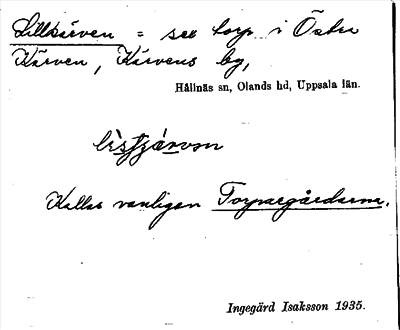 Lillkärven = see torp i Östra
Kärven, Kärvens by,
Hållnäs sn, Olands hd, Uppsala län.
Kallas vanligen Torpargårdarna.
Ingegärd Isaksson 1935.